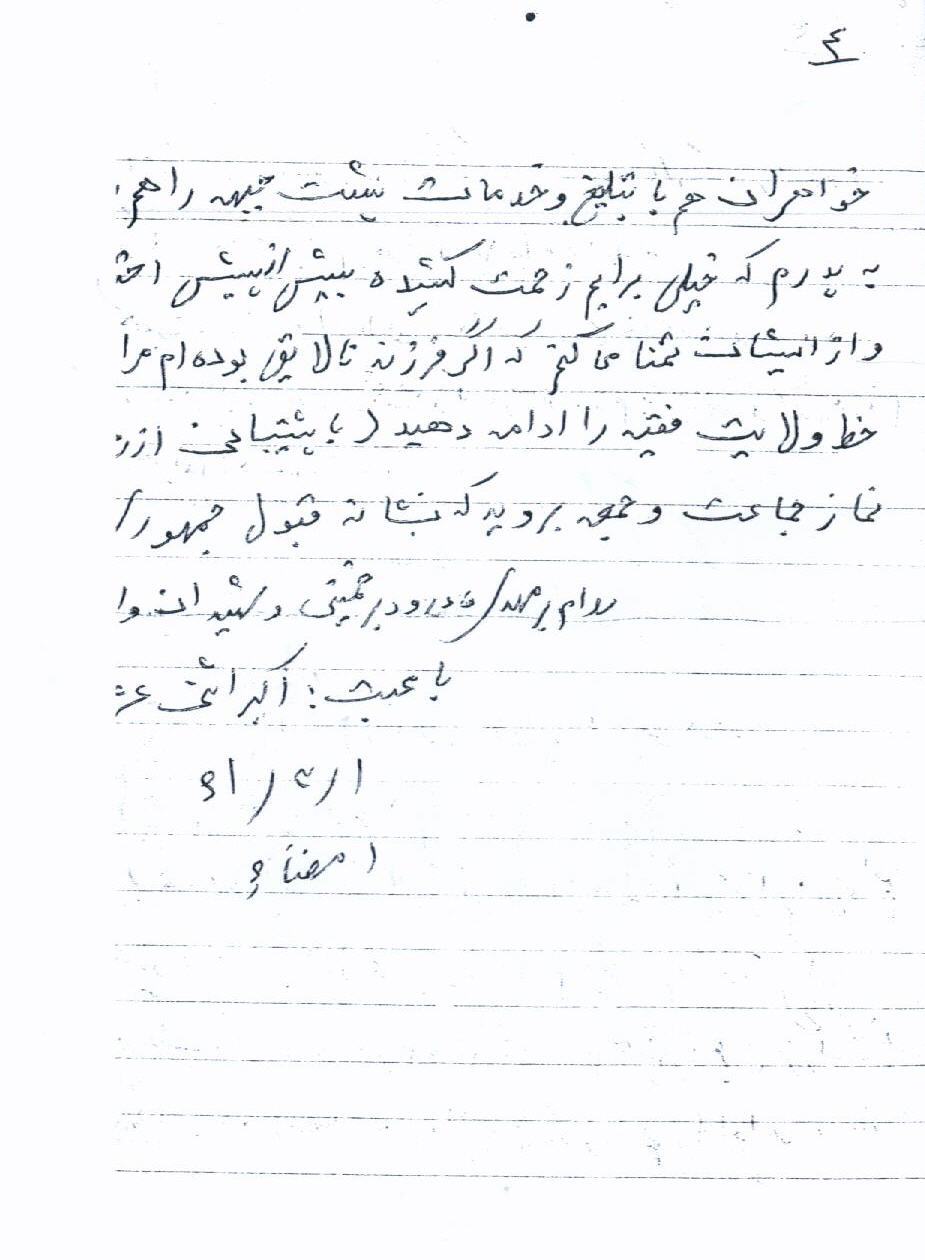 ٤
خواهران هم با تبلیغ و خدمات پشت جبهه راهم
به پدرم که خیلی برایم زحمت کشیده بیش از پیش
و از ایشان تمنا می کنم که اگر فرزند نالایق بوده ام مرا
خط ولایت فقیه را ادامه دهید ( با پشتیبانی از
نماز جماعت و جمعه بروید که نشانه قبول جمهوری
درود بر خمینی و شهیدان و
با محبت : اکبر
امضاء